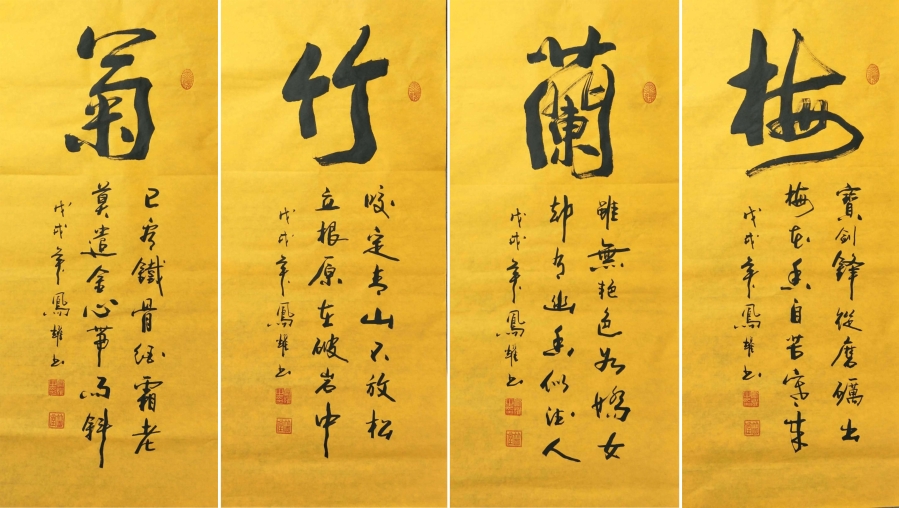 梅
寶劍鋒從磨礪出
梅花香自苦寒來
戊戌年鳳雄书
蘭
雖無艳色如嬌女
却有幽香似德人
戊戌年鳳雄书
竹
咬定青山不放松
立根原在破岩中
戊戌年鳳雄书
菊
已有鐵骨经霜老
莫遣金心带雨斜
戊戌年鳳雄书